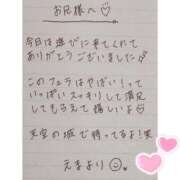 お兄様へ♡
今日は遊びに来てくれて
ありがとうございました
このフェラはやばい！って
いっぱいスッキリして満足
してもらえて嬉しいよ
天空の城で待ってるよ！
えまより